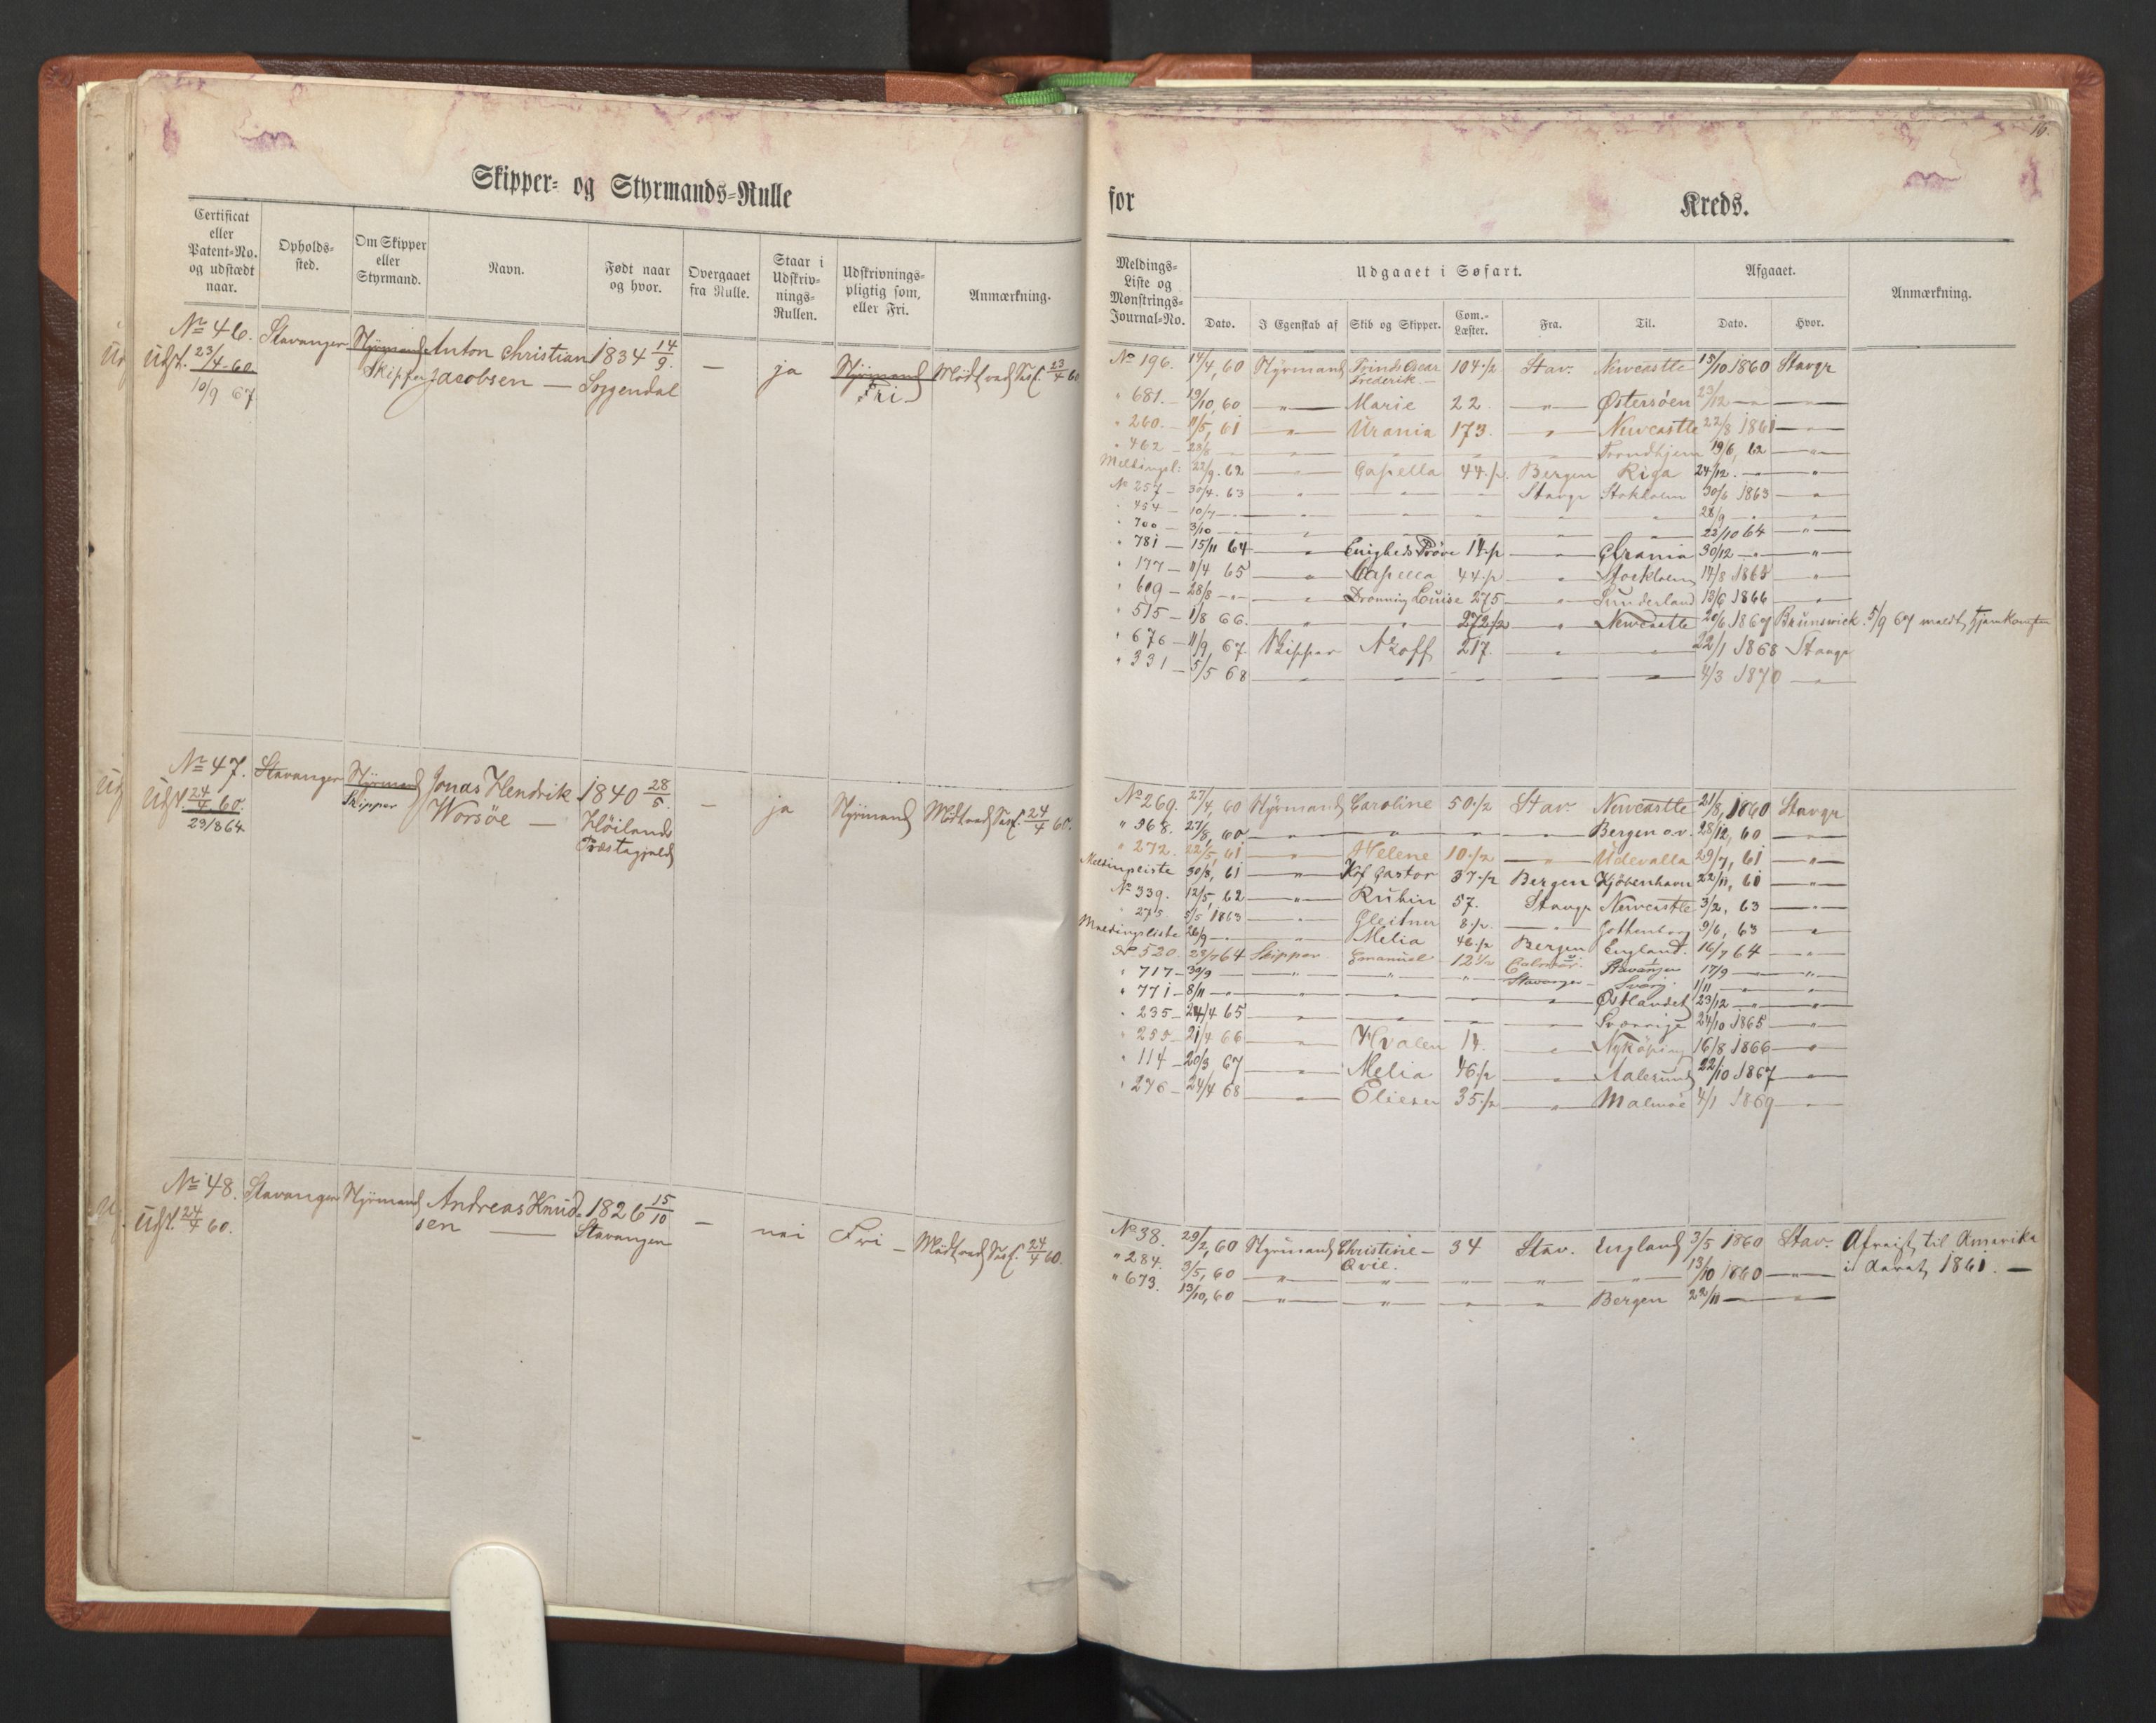 Skipper- og Styrmands-Rulle
Certificat eller Patent-No. og udstædt naar.
Opholds-sted.
Om Skipper eller Styrmand.
Navn.
Født naar og hvor.
Overgaaet fra Rulle.
Staar i Udskriv-nings-Rullen.
Udskrivnings-pligtig som, eller Fri.
Anmærkning.
No 46. Stavanger Styrmand Anton Christian 1834 14/9. — ja Styrmand Mødt ved Sesf. 23/4 60
Udst. 23/4 60 Skipper Jacobsen — Soggendal Fri
10/9 67
No 47. Stavanger Styrmand Jonas Hendrik 1840 28/5. — ja Styrmand Mødt ved Sesf. 24/4 60.
Udst. 24/4 60. Skipper Worsöe — Höilands
23/8 64 Præstegjeld
No 48. Stavanger Styrmand Andreas Knud- 1826 15/10 — nei Fri — Mödt ved Sesf. 24/4 60.
Udst. 24/4 60. sen — Stavanger
16.
for Kreds.
Meldings-Liste og Mønstrings-Journal-No.
Udgaaet i Søfart.
Afgaaet.
Anmærkning.
Dato. I Egenskab af Skib og Skipper. Com.-Læster. Fra. Til. Dato. Hvor.
No 196. 14/4, 60 Styrmand Prinds Oscar 104 1/2 Stav. Newcastle 15/10 1860 Stavgr
Frederik. —
" 681. — 19/10, 60 — " — Marie 22. — " — Østersøen 23/12 — " — — " —
" 260. — 11/5, 61 — " — Urania 173. — " — Newcastle 22/8 1861 — " —
" 462 — 28/8 — " — — " — — " — — " — — " — Trondhjem 19/6, 62 — " —
Meldingsl: 22/9. 62 — " — Capella 44 1/2. Bergen Riga 24/12. — " — "
No 257 — 30/4. 63 — " — — " — — " — Stavgr Stokholm 30/6 1863 — " —
" 454 — 10/7 — " — — " — — " — — " — — " — — " — 28/9 — " — — " —
" 700 — 3/10 — " — — " — — " — — " — — " — — " — 22/10 64 — " —
" 781 — 15/11 64 — " — Enigheds Prøve 14 1/2 — " — Grania 30/12 — " — — " —
" 177 — 11/4 65 — " — Capella 44 1/2 — " — Stockholm 14/8 1865 — " —
" 609 — 28/8 — " — — " — Dronning Louise 275 — " — Sunderland 13/6 1866 — " —
" 515 — 1/8 66. — " — — " — 272 1/2 — " — Newcastle 20/6 1867 Brunswick. 5/9 67 meldt Hjemkomsten
" 676 — 11/9 67. Skipper Azoff 217. — " — — " — 22/1 1868 Stavgr
" 331 — 5/5 68 — " — — " — — " — — " — — " — 4/3 1870 — " —
No 269. 27/4, 60 Styrmand Caroline 50 1/2 Stav. Newcastle 21/8, 1860 Stavgr
" 968. 27/8, 60 — " — — " — — " — — " — Bergen o.v. 28/12, 60 — " —
" 272. 22/5, 61 — " — Helene 10 1/2 — " — Udevalla 29/7, 61 — " —
Meldingsliste 30/8, 61 — " — Kof Castor 37 1/2 Bergen Kjöbenhavn 22/11, 61 — " —
No 339. 12/5, 62 — " — Rubin 57. Stavgr Newcastle 3/2, 63 — " —
" 275. 5/5 1863 — " — Gleitner 8 1/2. — " — Gottenborg 9/6, 63 — " —
Meldingsliste 26/9 — " — — " — Melia 46 1/2 Bergen England. 16/7 64 — " —
No 520. 23/7 64 Skipper Emanuel 12 1/2 Stavanger 17/9 — " — — " —
" 717 — 30/9 — " — — " — — " — Stavanger — 1/11 — " — — " —
" 771 — 8/11 — " — — " — — " — — " — — " — Østlandet 23/12 — " — — " —
" 235 — 24/4 65 — " — — " — — " — — " — Sverrige 24/10 1865 — " —
" 255 — 21/4 66 — " — Hvalen 14. — " — Nyköping 16/8 1866 — " —
" 114 — 20/3 67 — " — Melia 46 1/2 — " — Aalesund 22/10 1867 — " —
" 276 — 24/4 68 — " — Elieser 35 1/2 — " — Malmöe 4/1 1869 — " —
No 38. 29/2, 60 Styrmand Christine — 34 Stav. England 3/5 1860 Stav. Afreist til Amerika
" 284. 3/5, 60 — " — Qvie. — " — — " — — " — 13/10 1860 — " — i Aaret 1861. —
" 673. 13/10, 60 — " — — " — — " — — " — Bergen 22/11 — " — — " —